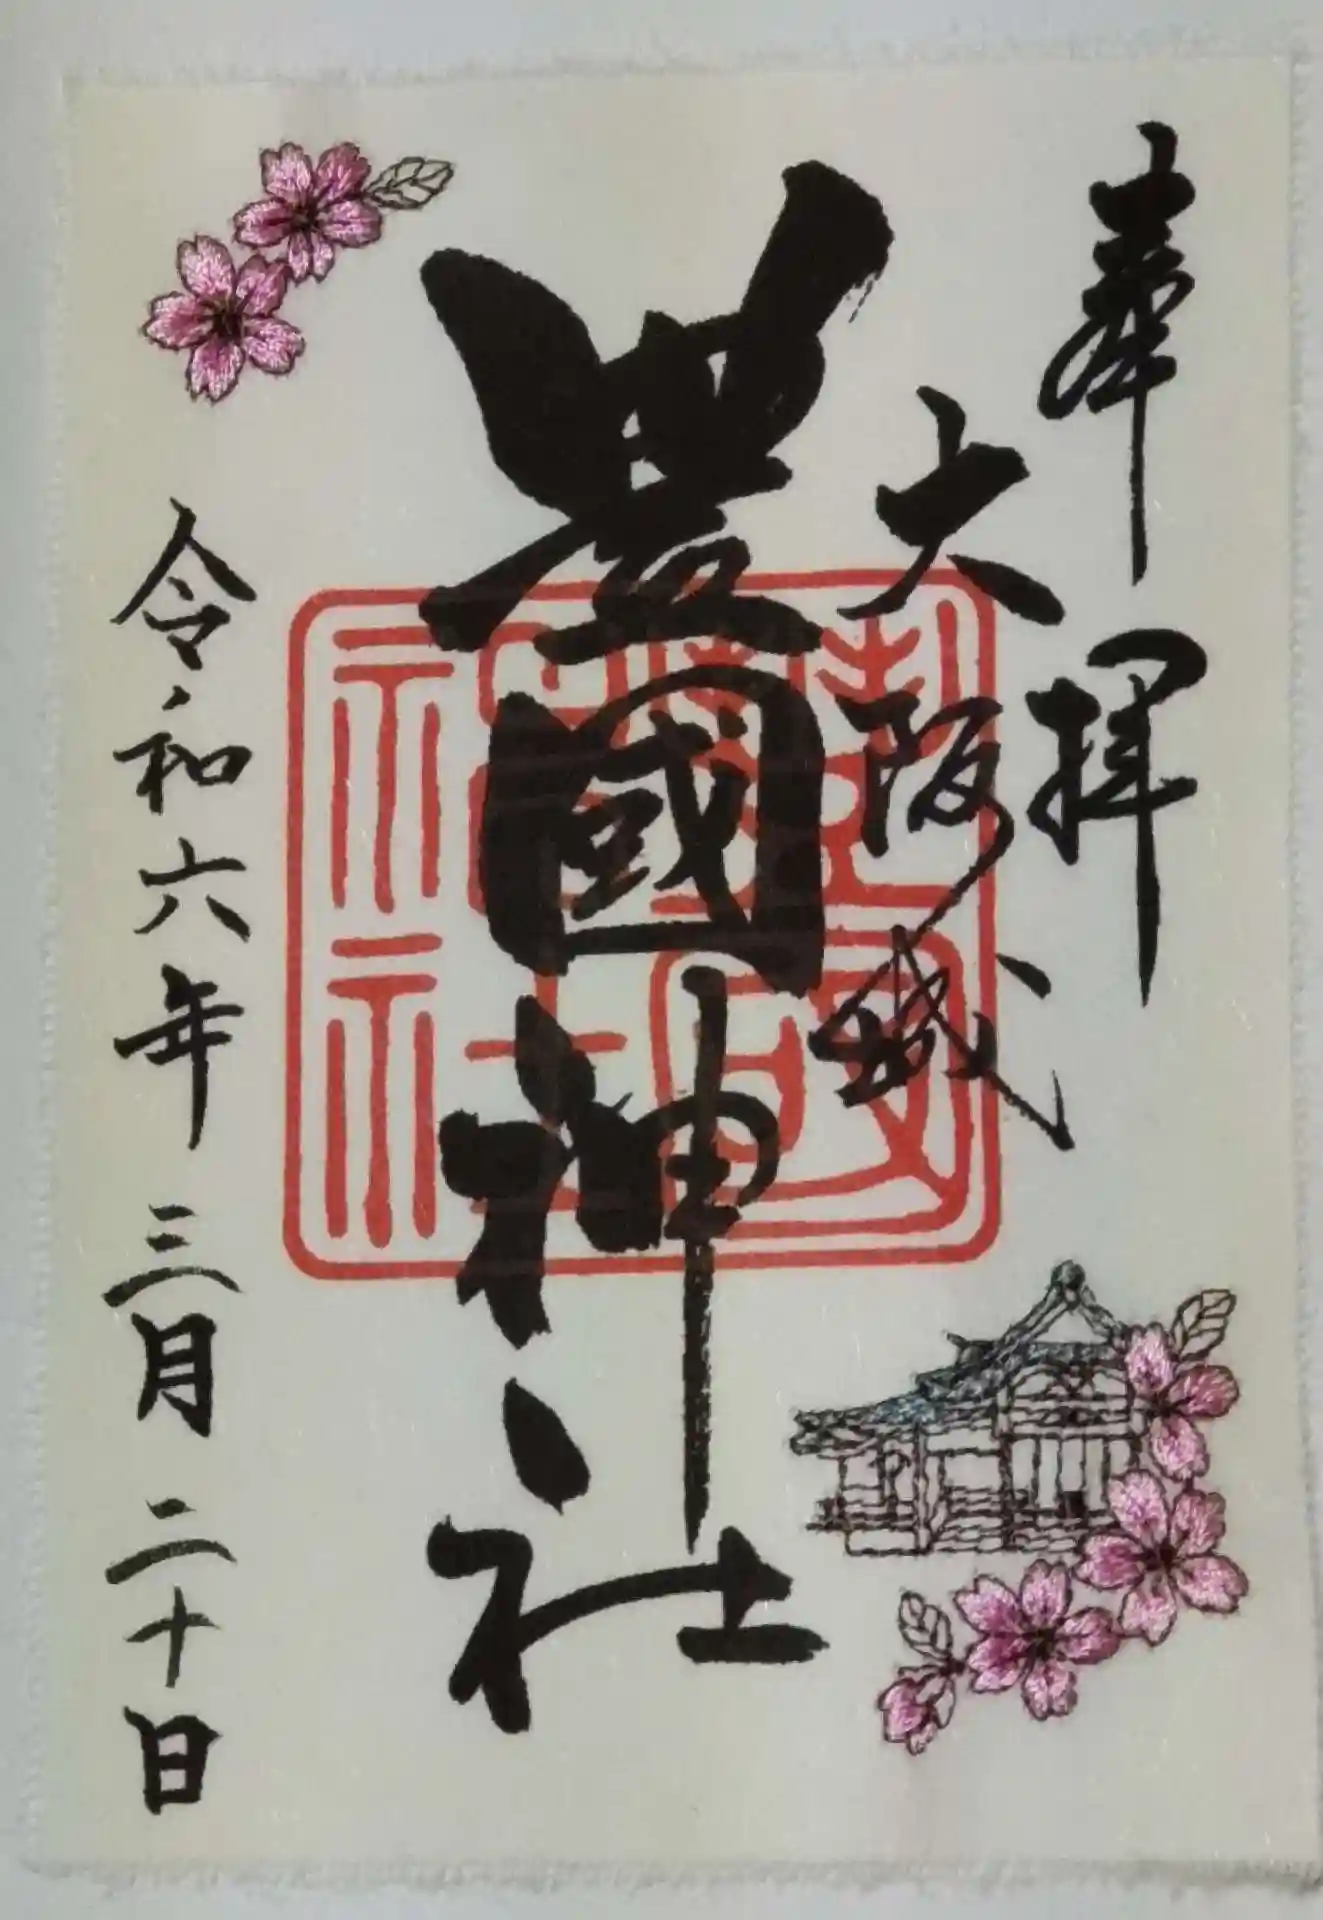 奉拝
大阪城
豊國神社
豊國神社
令和六年 三月 二十日